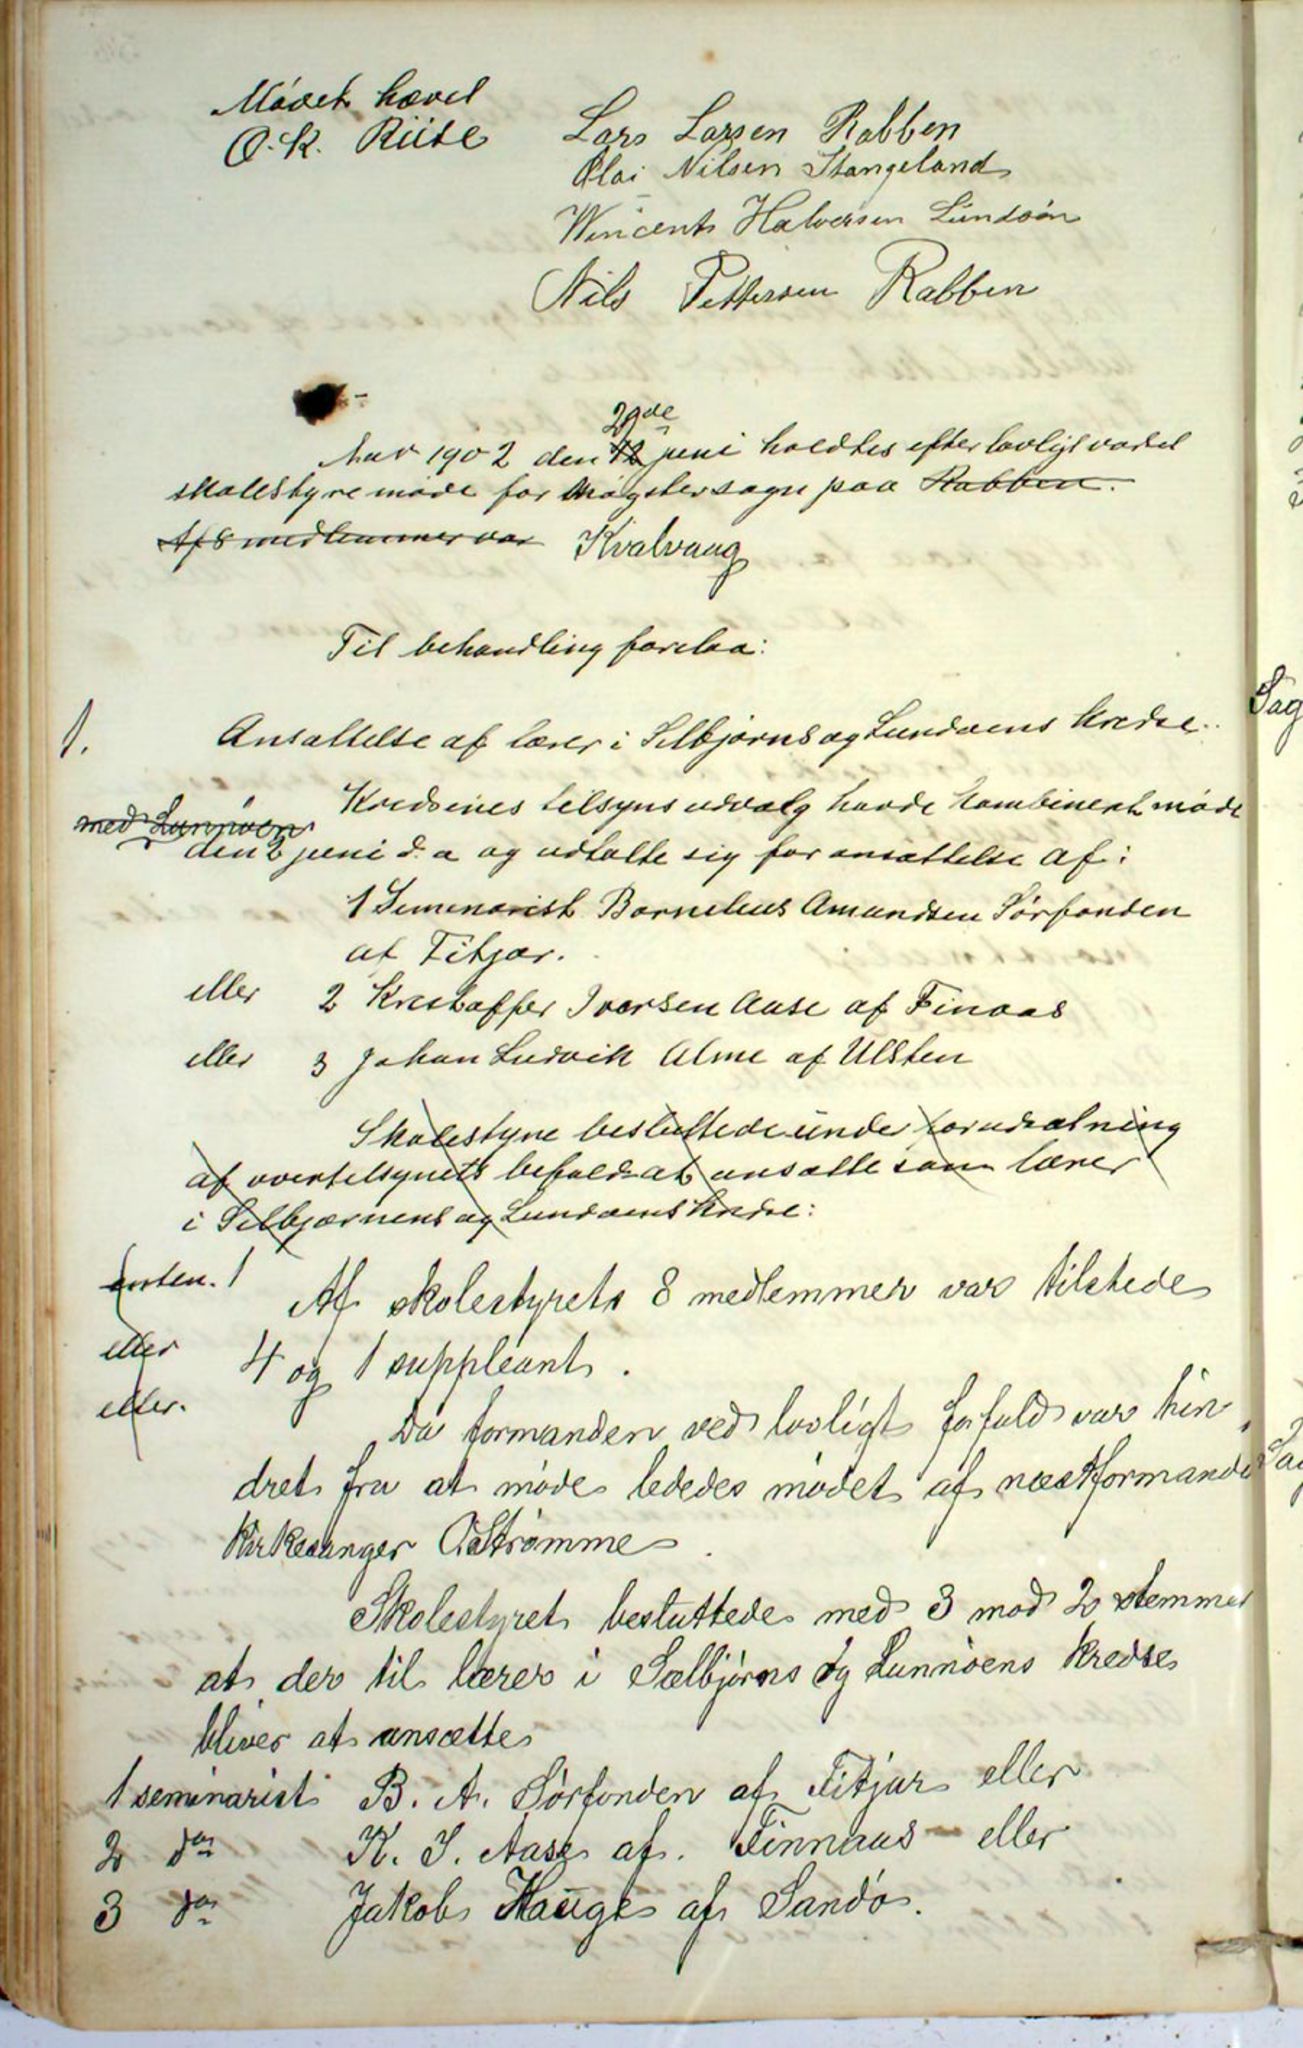 Mødet hævet
O. K. Riise
Lars Larsen Rabben
Olai Nilsen Stangeland
Wincents Halversen Lundøen
Nils Pettersen Rabben
29de
Aar 1902 den 12 juni holdtes efter lovligt varsel
skolestyremøde for Møgster sogn paa Rabben.
Af 8 medlemmer var Kvalvaag
Til behandling forelaa:
1. Ansættelse af lærer i Selbjørns og Lundøens kredse.
Kredsenes tilsynsudvalg havde kombinert møde
med Lunnøen
den 2 juni d. a og udtalte sig for ansættelse af:
1 Seminarist Bornelius Amundsen Sørfonden
af Fitjar.
eller 2 Kristoffer Iversen Aase af Finaas
eller 3 Johan Ludvik Alme af Ulsten
Skolestyre besluttede under forudsætning
af overtilsynets befalds at ansætte som lærer
i Selbjørnens og Lundøens kredse:
enten. 1
Af skolestyrets 8 medlemmer var tilstede
eller
4 og 1 suppleant.
eller.
Da formanden ved lovligt forfald var hin
dret fra at møde lededes mødet af næstformand
kirkesanger A Strømme
Skolestyret besluttede med 3 mod 2 stemmer
at der til lærer i Sælbjørns og Lunnøens kredse
bliver at ansætte
1 seminarist B. A. Sørfonden af Fitjar eller
2 do K. I. Aase af. Finnaas eller
3 do Jakob Hauge af Sandø.
Sag